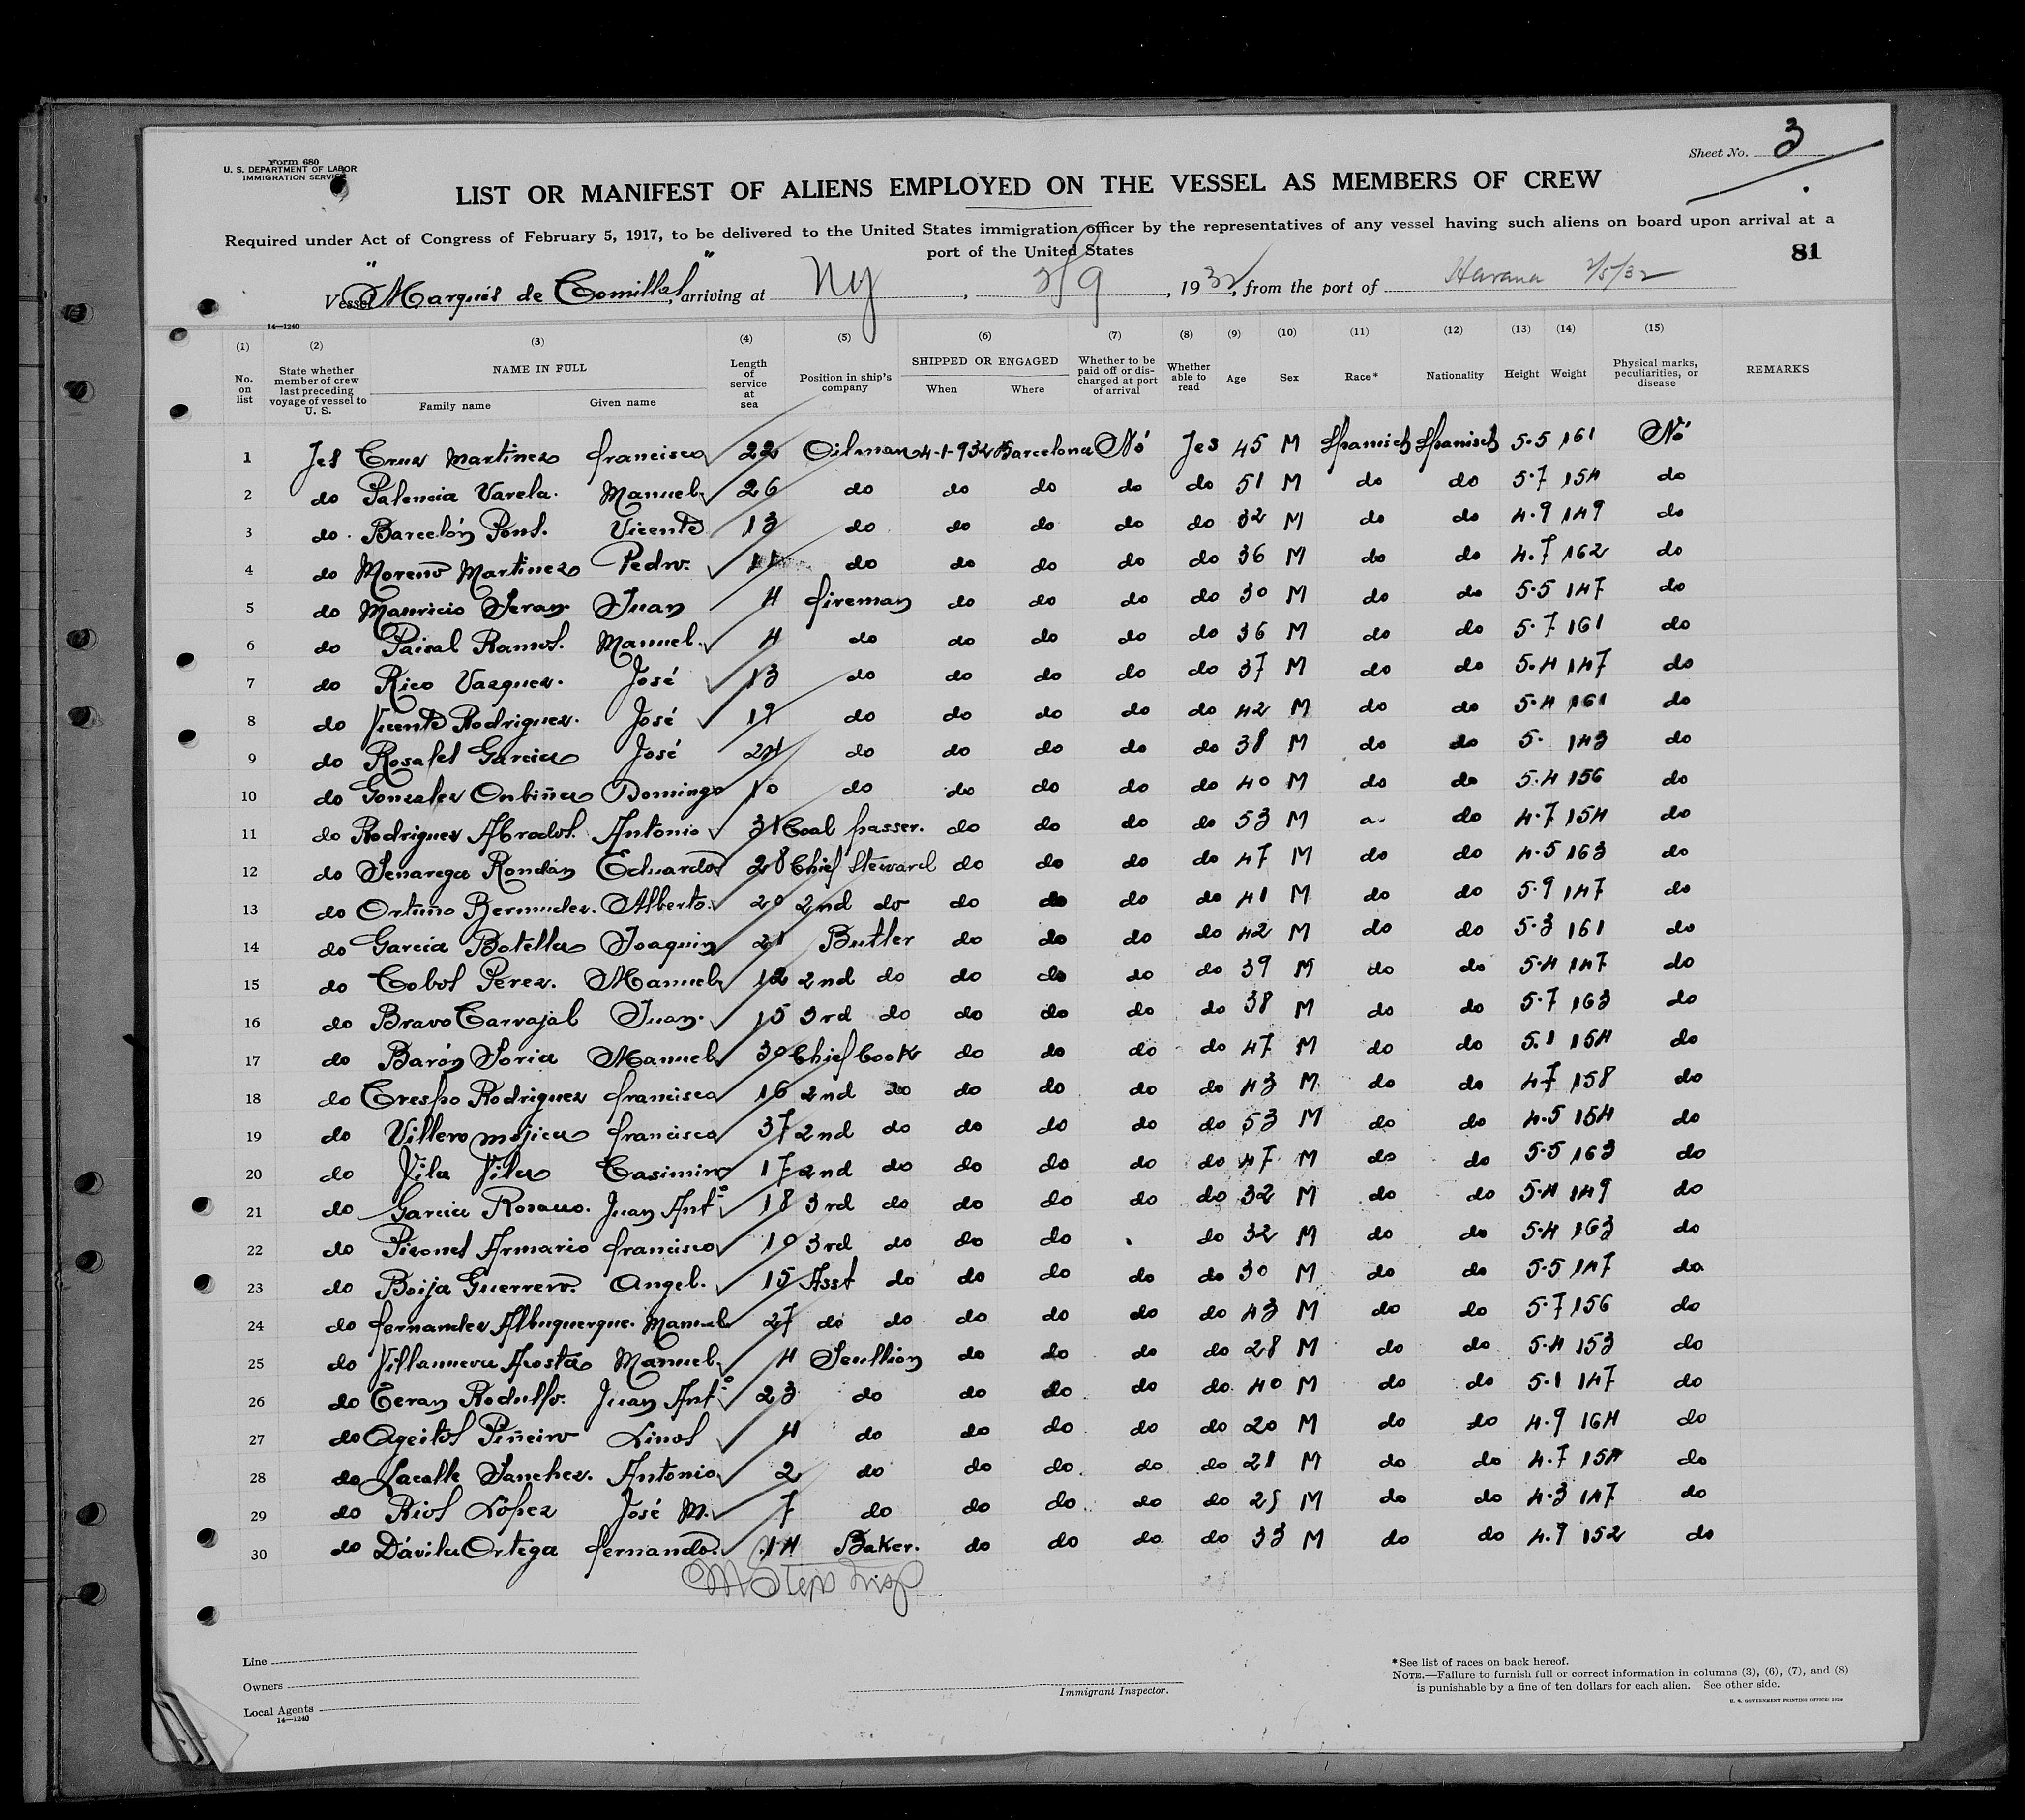 Form 680
U. S. DEPARTMENT OF LABOR
IMMIGRATION SERVICE
Sheet No. 3
LIST OR MANIFEST OF ALIENS EMPLOYED ON THE VESSEL AS MEMBERS OF CREW
Required under Act of Congress of February 5, 1917, to be delivered to the United States immigration officer by the representatives of any vessel having such aliens on board upon arrival at a
port of the United States
81
Vessel "Marqués de Comillas", arriving at Ny, 2/9, 1932, from the port of Havana 2/5/32
14—1240
(1) (2) (3) (4) (5) (6) (7) (8) (9) (10) (11) (12) (13) (14) (15)
No. on list State whether member of crew last preceding voyage of vessel to U. S. NAME IN FULL Family name Given name Length of service at sea Position in ship's company SHIPPED OR ENGAGED When Where Whether to be paid off or discharged at port of arrival Whether able to read Age Sex Race* Nationality Height Weight Physical marks, peculiarities, or disease REMARKS
1 Jes Cruz Martinez francisco 22 Oilman 4-1-932 Barcelona Nó Jes 45 M Spanisch Spanisch 5.5 161 Nó
2 do Palencia Varela. Manuel 26 do do do do do 51 M do do 5.7 154 do
3 do Barcelón Pons. Vicente 13 do do do do do 32 M do do 4.9 149 do
4 do Moreno Martinez Pedro. 11 do do do do do 36 M do do 4.7 162 do
5 do Mauricio Teran. Juan 4 fireman do do do do 30 M do do 5.5 147 do
6 do Paisal Ramos. Manuel. 4 do do do do do 36 M do do 5.7 161 do
7 do Rico Vazquez. José 13 do do do do do 37 M do do 5.4 147 do
8 do Vicente Rodriguez. José 19 do do do do do 42 M do do 5.4 161 do
9 do Garcia José 24 do do do do do 38 M do do 5. 143 do
10 do Gonzalez Domingo 10 do do do do do 40 M do do 5.4 156 do
11 do Rodriguez Antonio 31 Coal passer. do do do do 53 M do 4.7 154 do
12 do Senarega Rondán Eduardo 28 Chief Steward do do do do 47 M do do 4.5 163 do
13 do Ortuño Bermudez. Alberto. 20 2nd do do do do do 41 M do do 5.9 147 do
14 do Garcia Botella Joaquin 21 Butler do do do do 42 M do do 5.3 161 do
15 do Cobos Perez. Manuel 12 2nd do do do do do 39 M do do 5.4 147 do
16 do Bravo Carvajal Juan. 15 3rd do do do do do 38 M do do 5.7 163 do
17 do Barón Soria Manuel 30 Chief Cook do do do do 47 M do do 5.1 154 do
18 do Crespo Rodriguez francisco 16 2nd do do do do do 43 M do do 4.7 158 do
19 do Villero Mojica francisco 37 2nd do do do do do 53 M do do 4.5 154 do
20 do Vila Vila Casimiro 17 2nd do do do do do 47 M do do 5.5 163 do
21 do Garcia Juan Antº 18 3rd do do do do do 32 M do do 5.4 149 do
22 do Armario francisco 10 3rd do do do do 32 M do do 5.4 163 do
23 do Boija Guerrero. Angel. 15 Asst do do do do do 30 M do do 5.5 147 do
24 do fernandez Albuquerque. Manuel 27 do do do do do do 43 M do do 5.7 156 do
25 do Villanueva Acosta Manuel. 4 Scullion do do do do 28 M do do 5.4 153 do
26 do Teran Rodulfo. Juan Antº 23 do do do do do 40 M do do 5.1 147 do
27 do Ageitos Piñeiro Linos 4 do do do do do 20 M do do 4.9 164 do
28 do Lacalle Sanchez. Antonio 2 do do do do do 21 M do do 4.7 154 do
29 do Rios López José M. 7 do do do do do 25 M do do 4.3 147 do
30 do Dávila Ortega fernando. 14 Baker. do do do do 33 M do do 4.9 152 do
Line
Owners
Local Agents
14—1240
Immigrant Inspector.
* See list of races on back hereof.
NOTE.—Failure to furnish full or correct information in columns (3), (6), (7), and (8)
is punishable by a fine of ten dollars for each alien. See other side.